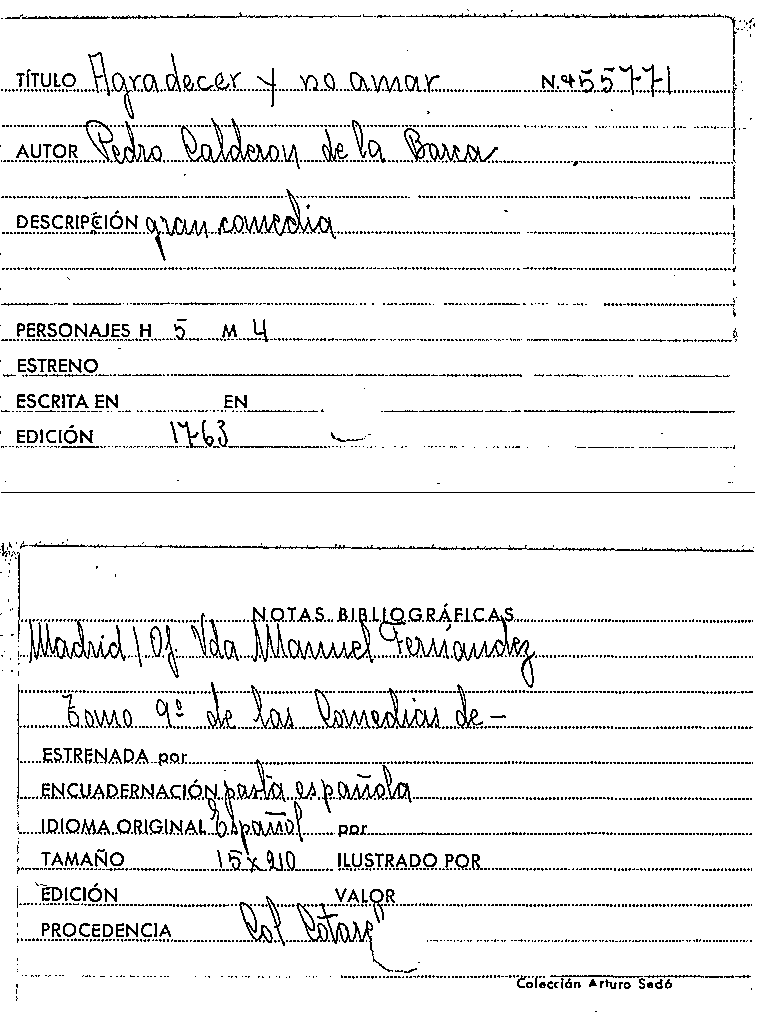 TÍTULO Agradecer y no amar N.º 55771
AUTOR Pedro Calderon de la Barca
DESCRIPCIÓN gran comedia
PERSONAJES H 5 M 4
ESTRENO
ESCRITA EN EN
EDICIÓN 1763
NOTAS BIBLIOGRÁFICAS
Madrid / Of. Vda Manuel Fernández
Tomo 9º de las Comedias de –
ESTRENADA por
ENCUADERNACIÓN pasta española
IDIOMA ORIGINAL Español por
TAMAÑO 15 x 210 ILUSTRADO POR
EDICIÓN VALOR
PROCEDENCIA Col
Colección Arturo Sedó